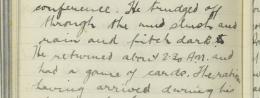 conference. He trudged off
through the mud slush and
rain and pitch dark &
He returned about 2.30 Am. and
had a game of cards. The rations
having arrived during his